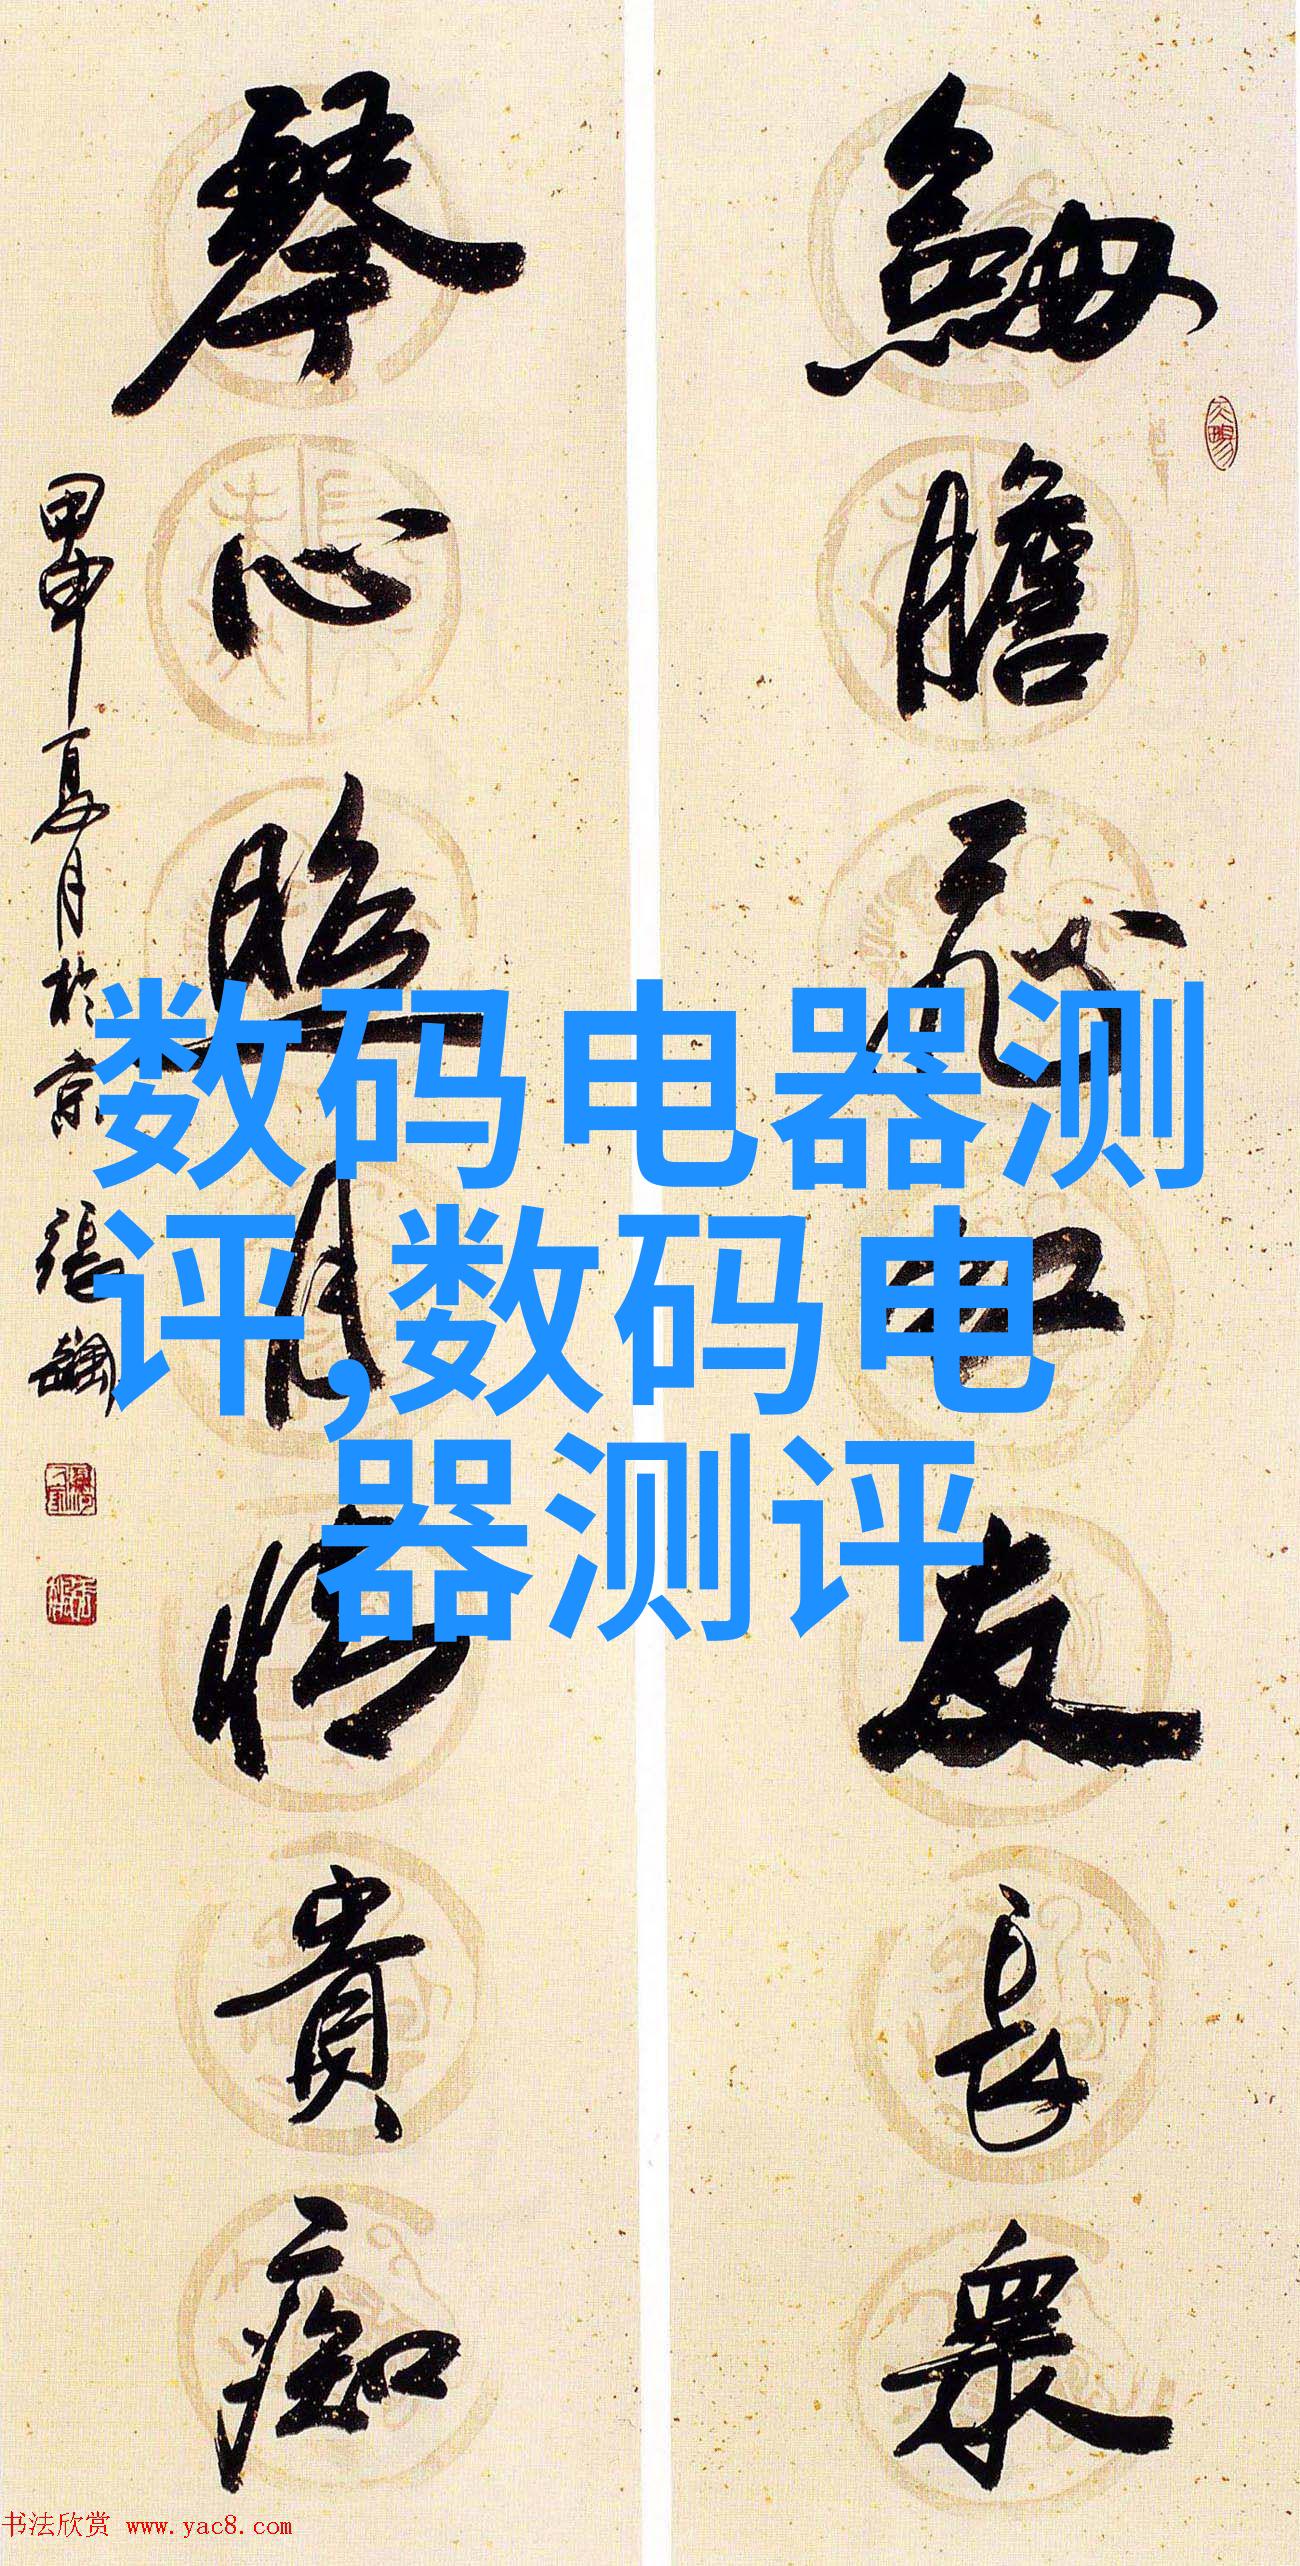 劍膽飛虹友長衆
琴心照月情貴痴
甲申夏月於京 張
数码电器测
评,数码电
器测评
书法欣赏 www.yac8.com